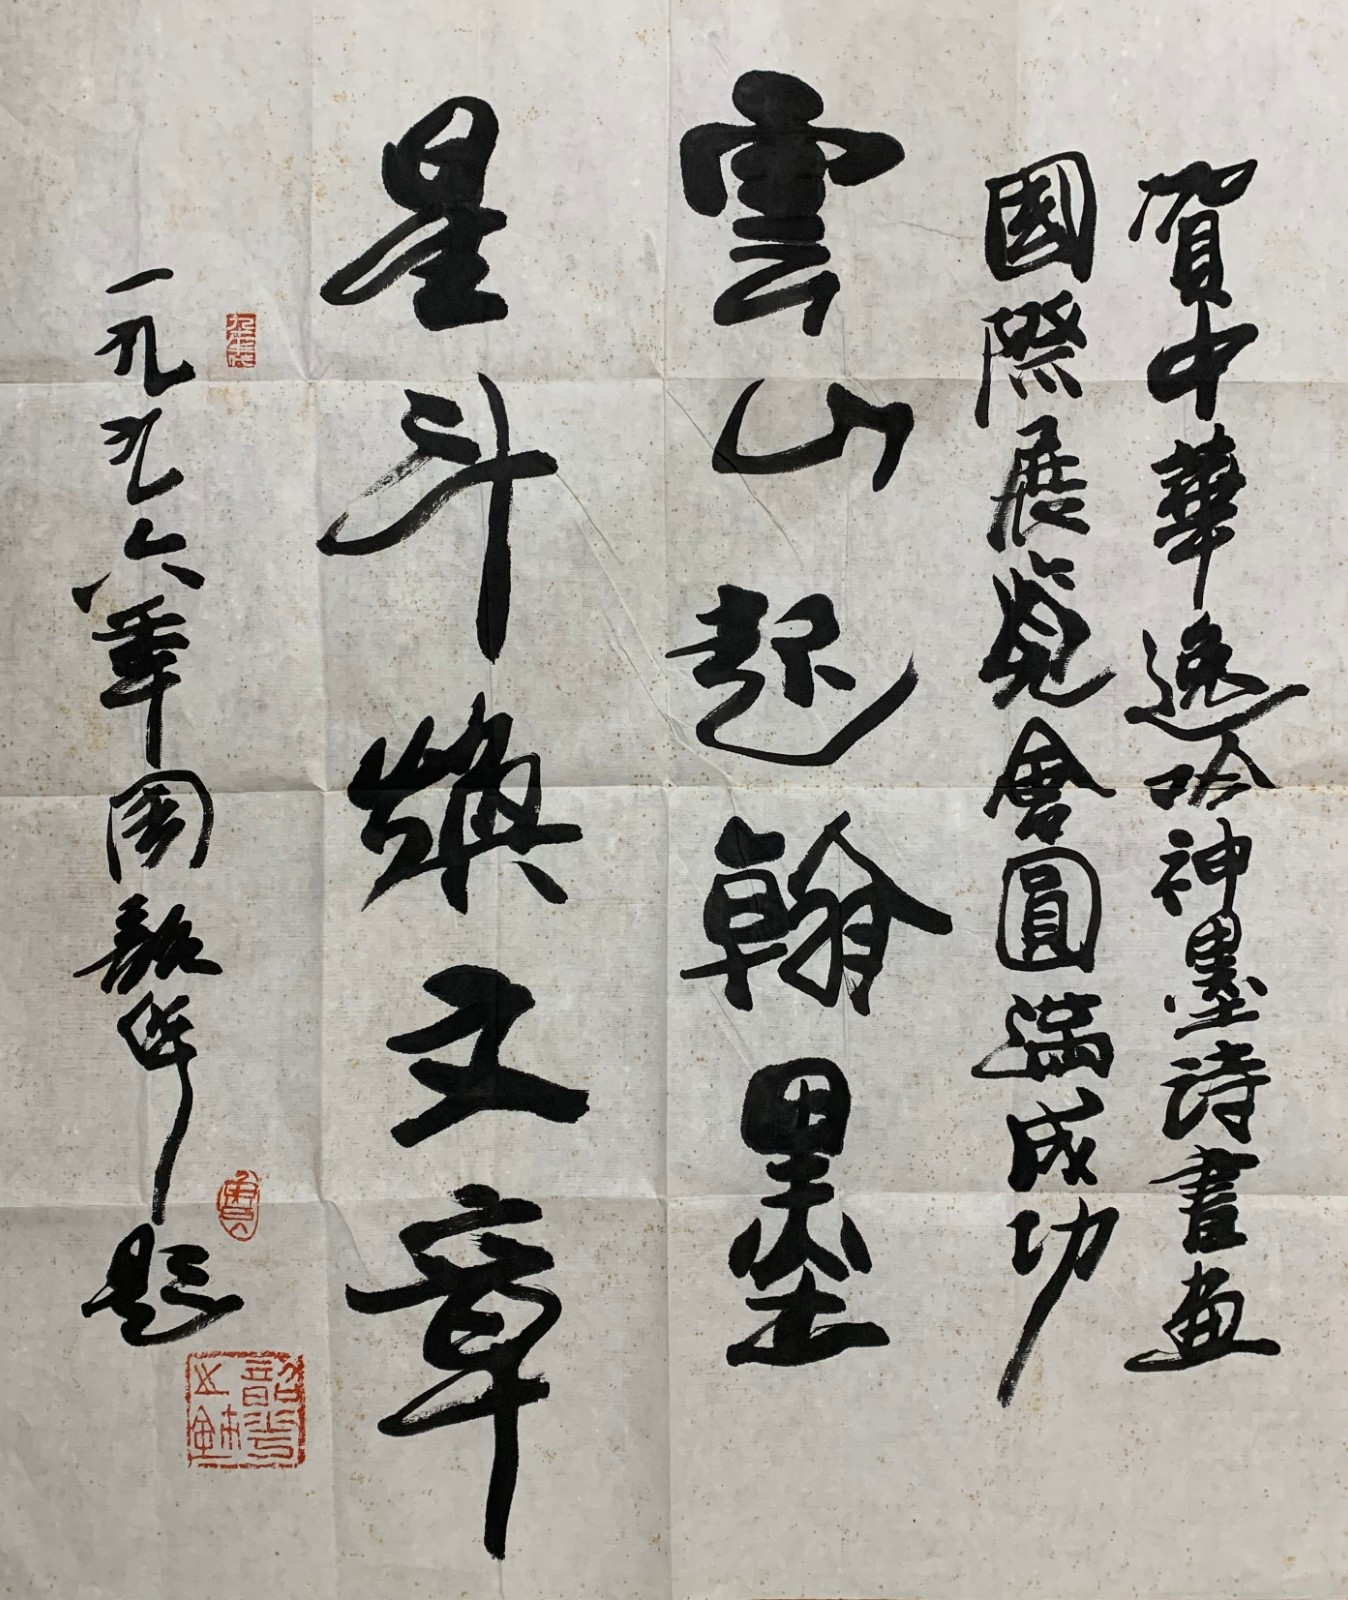 賀中華逸吟神墨詩書畫
國際展覧會圓滿成功
雲山起翰墨
星斗煥文章
一九九六年周韶华題